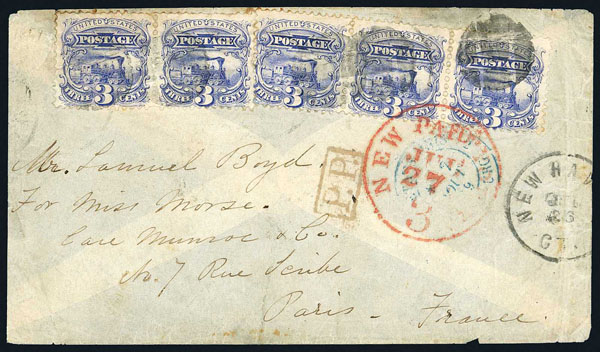 UNITED STATES UNITED STATES UNITED STATES UNITED STATES UNITED STATES
POSTAGE POSTAGE POSTAGE POSTAGE POSTAGE
THREE 3 CENTS THREE 3 CENTS THREE 3 CENTS THREE 3 CENTS THREE 3 CENTS
NEW PAID YORK
JUL
27
3
P.P.
NEW HAV
CT.
Mr. Samuel Boyd.
For Miss Morse.
Care Munroe & Co.
No. 7 Rue Scribe
Paris - France.